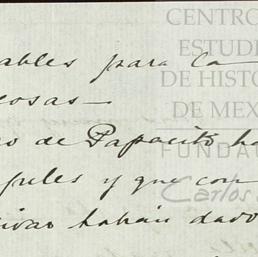 ables para la
cosas—
o de Papacito ha
y que con
habán dado
CENTRO
ESTUDI
DE HISTO
DE MEX
FUNDA
Carlos